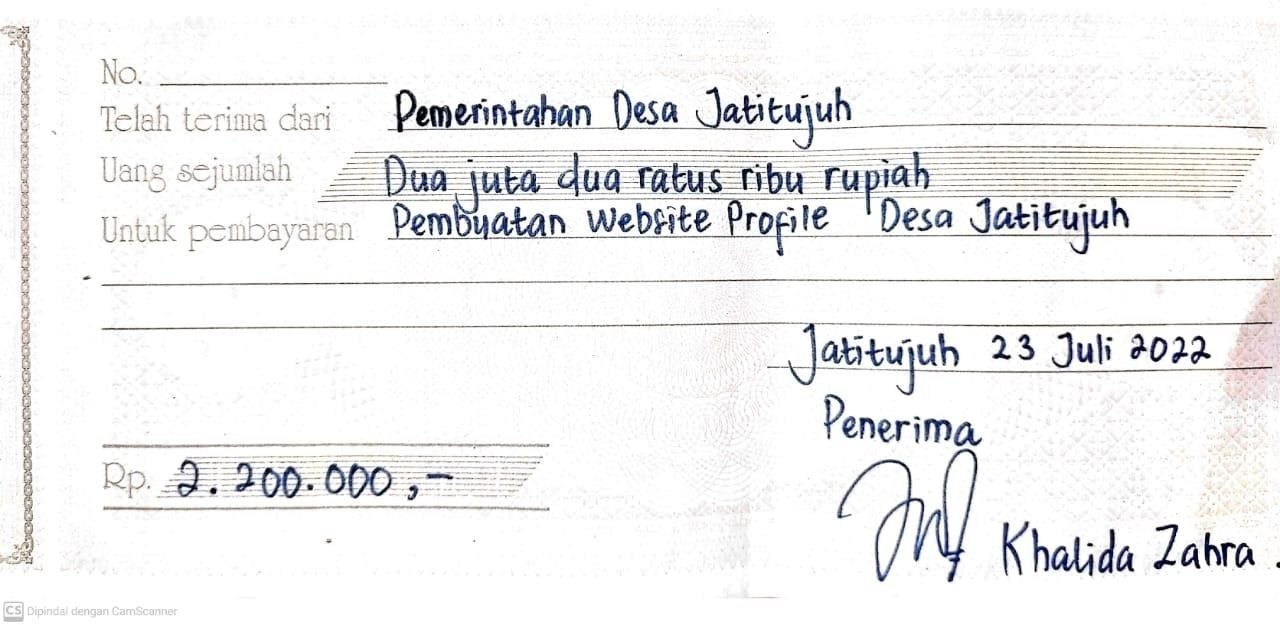 No.
Telah terima dari Pemerintahan Desa Jatitujuh
Uang sejumlah Dua juta dua ratus ribu rupiah
Untuk pembayaran Pembuatan Website Profile Desa Jatitujuh
Jatitujuh 23 Juli 2022
Penerima
Rp. 2.200.000,-
Khalida Zahra.
CS Dipindai dengan CamScanner